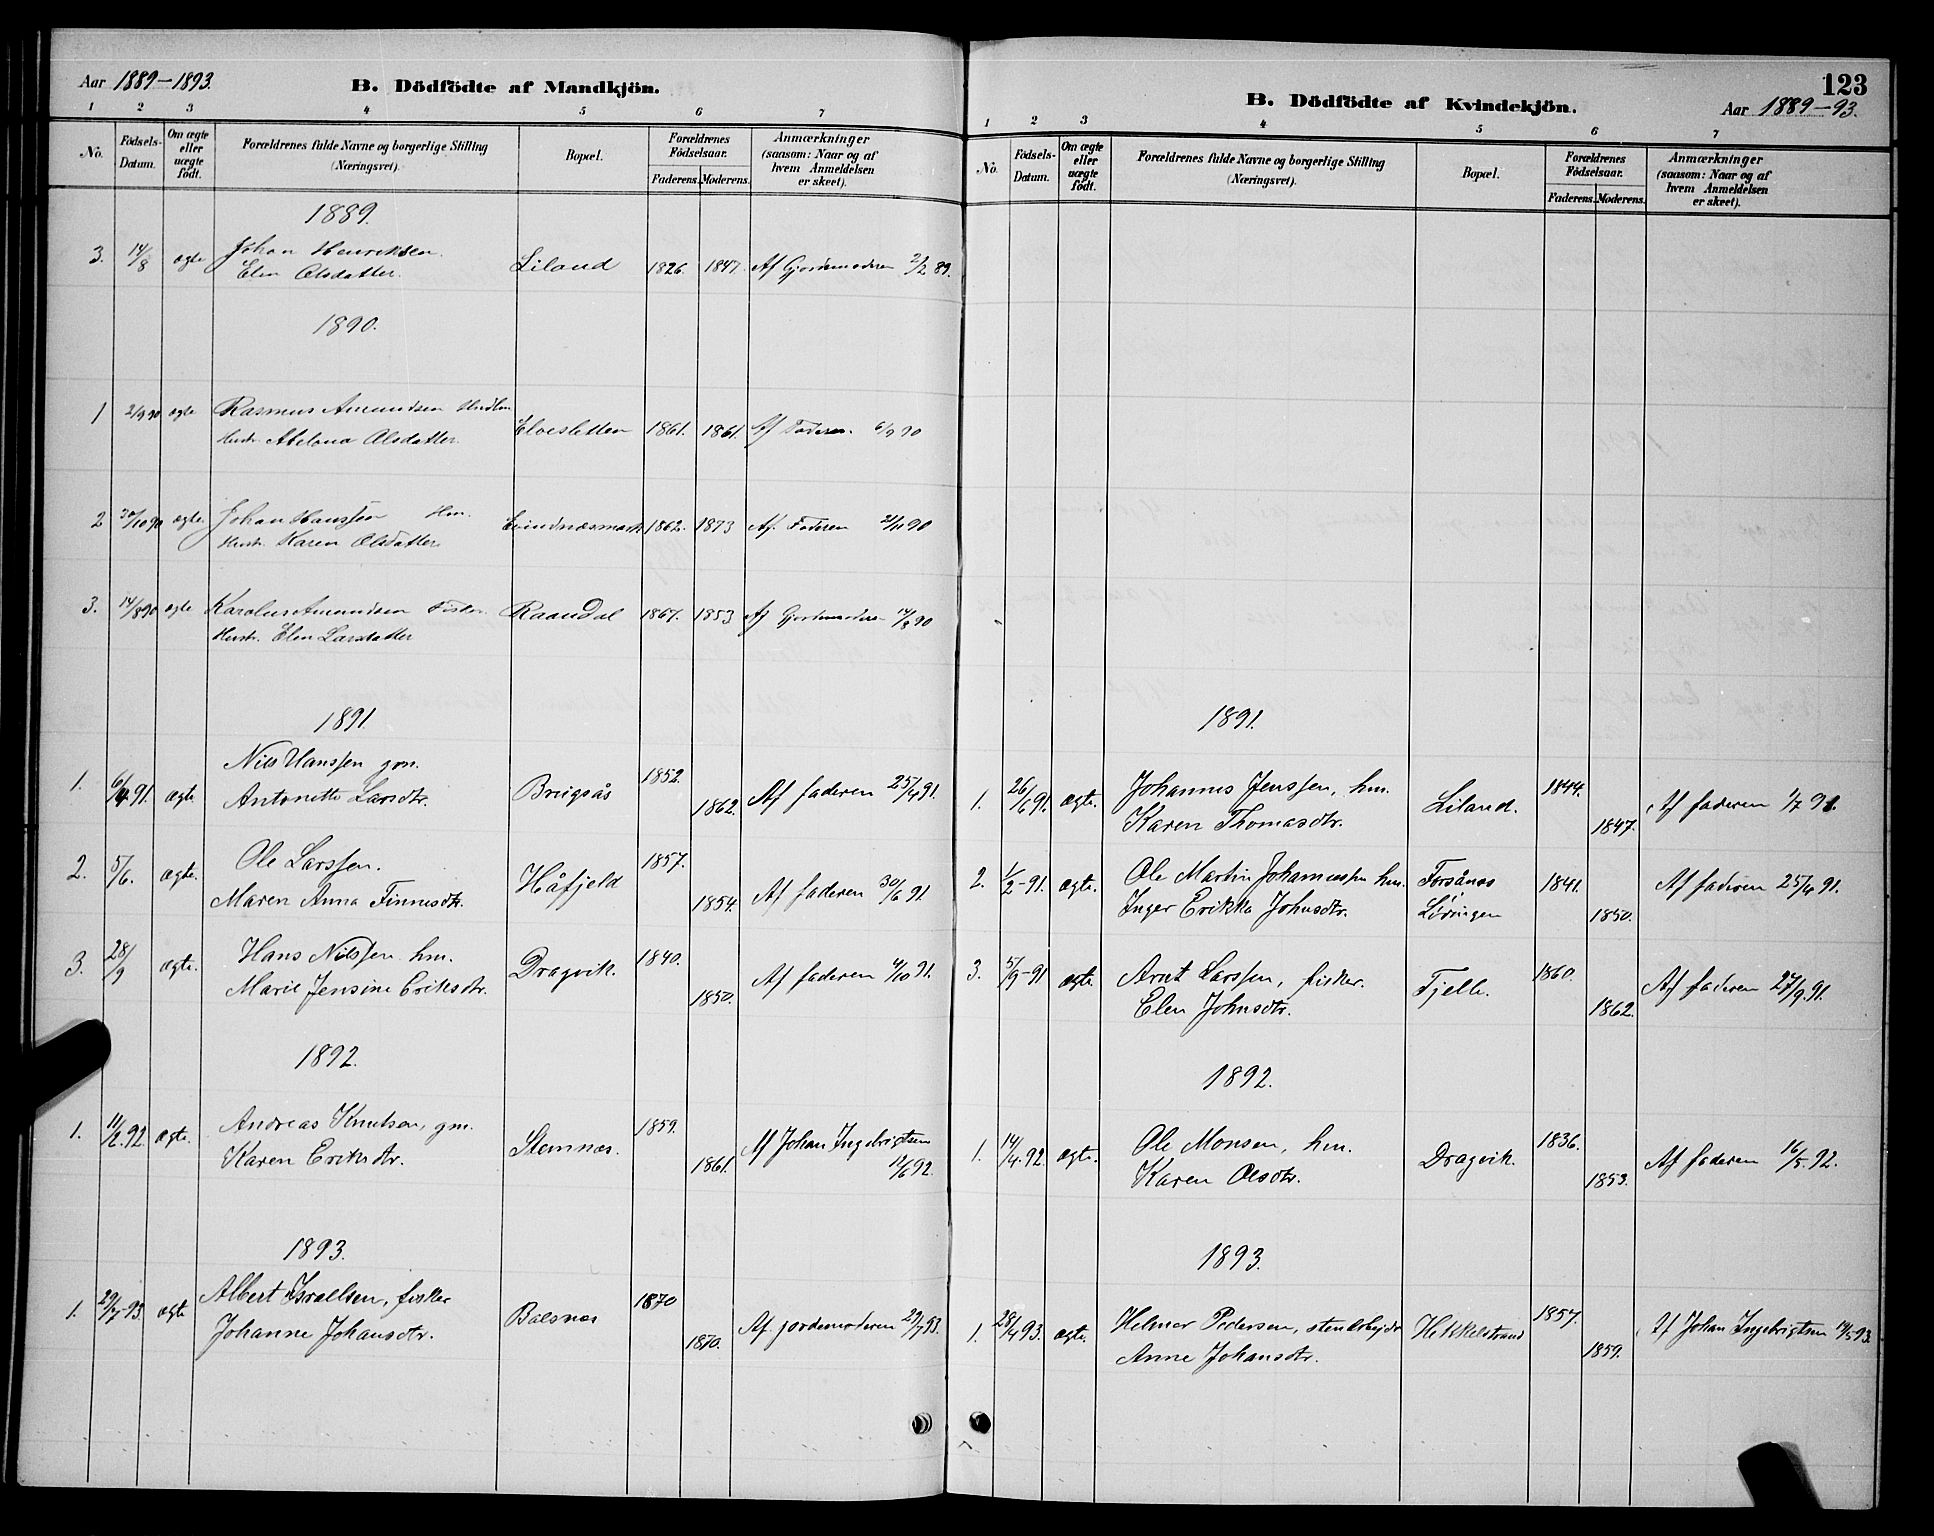 Aar 1889-1893. B. Dödfödte af Mandkjön.
1 2 3 4 5 6 7
No. Födsels-Datum. Om ægte eller uægte födt. Forældrenes fulde Navne og borgerlige Stilling (Næringsvei). Bopæl. Forældrenes Födselsaar. Faderens. Moderens. Anmærkninger (saasom: Naar og af hvem Anmeldelsen er skeet).
1889.
3. 14/8 ægte Johan Henriksen Liland 1826. 1847. Af Gjordemoderen 2/2 89.
Elen Olsdatter.
1890.
1 2/9 90 ægte Rasmus Amundsen Elvesletten 1861. 1861. Af Faderen. 6/9 90
Hustr. Abelona Olsdatter.
2 30/10 90 ægte Johan Hanssen Hm. Evindnæsmark 1862. 1873 Af Faderen 2/11 90
Hustr. Karen Olsdatter
3. 14/8 90 ægte Karolus Amundsen Fisker Raandal 1867. 1853 Af Gjordemoderen 14/8 90
Hustr. Elen Larsdatter
1891.
1. 6/4 91. ægte Nils Hanssen gm. Brugsås 1852. 1862. Af faderen 25/4 91.
Antonette Larsdtr.
2. 5/6. ægte. Ole Larssen. Håfjeld 1857. 1854. Af faderen 30/6 91.
Maren Anna Finnesdtr.
3. 28/9 ægte. Hans Nilssen hm. Dragvik. 1840. 1850. Af faderen 4/10 91.
Marie Jensine Eriksdtr.
1892.
1. 11/2. 92. ægte. Andreas Knutsen, gm. Stemnæs. 1859. 1861. Af Johan Ingebrigtsen 12/6 92.
Karen Eriksdtr.
1893.
1. 29/7-93. ægte Albert Israelsen, fisker Balsnes 1870 1870. Af jordemoderen 29/7 93.
Johanne Johansdtr.
123
B. Dödfödte af Kvindekjön. Aar 1889-93.
1 2 3 4 5 6 7
No. Födsels-Datum. Om ægte eller uægte födt. Forældrenes fulde Navne og borgerlige Stilling (Næringsvei). Bopæl. Forældrenes Födselsaar. Faderens. Moderens. Anmærkninger (saasom: Naar og af hvem Anmeldelsen er skeet).
1891.
1. 26/6 91. ægte. Johannes Jenssen, hm. Liland. 1844. 1847. Af faderen 1/7 91.
Karen Thomasdtr.
2. 1/2-91. ægte. Ole Martin Johannessen hm. Forsånæs 1841. 1850. Af faderen 25/4 91.
Inger Erikka Johnsdtr. Lödingen
3. 5/9-91 ægte. Arnt Larssen, fisker. Fjelle. 1860. 1862. Af faderen 27/9. 91.
Elen Johnsdtr.
1892.
1. 14/4. 92. ægte. Ole Monsen, hm. Dragvik. 1836. 1853. Af faderen 16/5. 92.
Karen Olsdtr.
1893.
1. 28/4 93. ægte. Helmer Pedersen, stenarbejdr Hekkelstrand 1857. 1859. Af Johan Ingebrigtsen 14/5 93.
Anne Johansdtr.